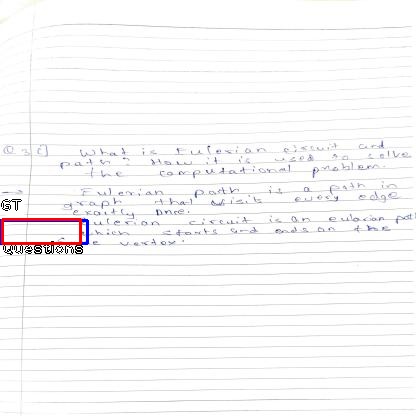 Q 3 c] What is Eulerian circuit and
path? How it is used to solve
the computational problem.
→ Eulerian path is a path in
GT
graph that visits every edge
exactly once.
ulerian circuit is an eularian path
which starts and ends on the
e vertex.
Questions